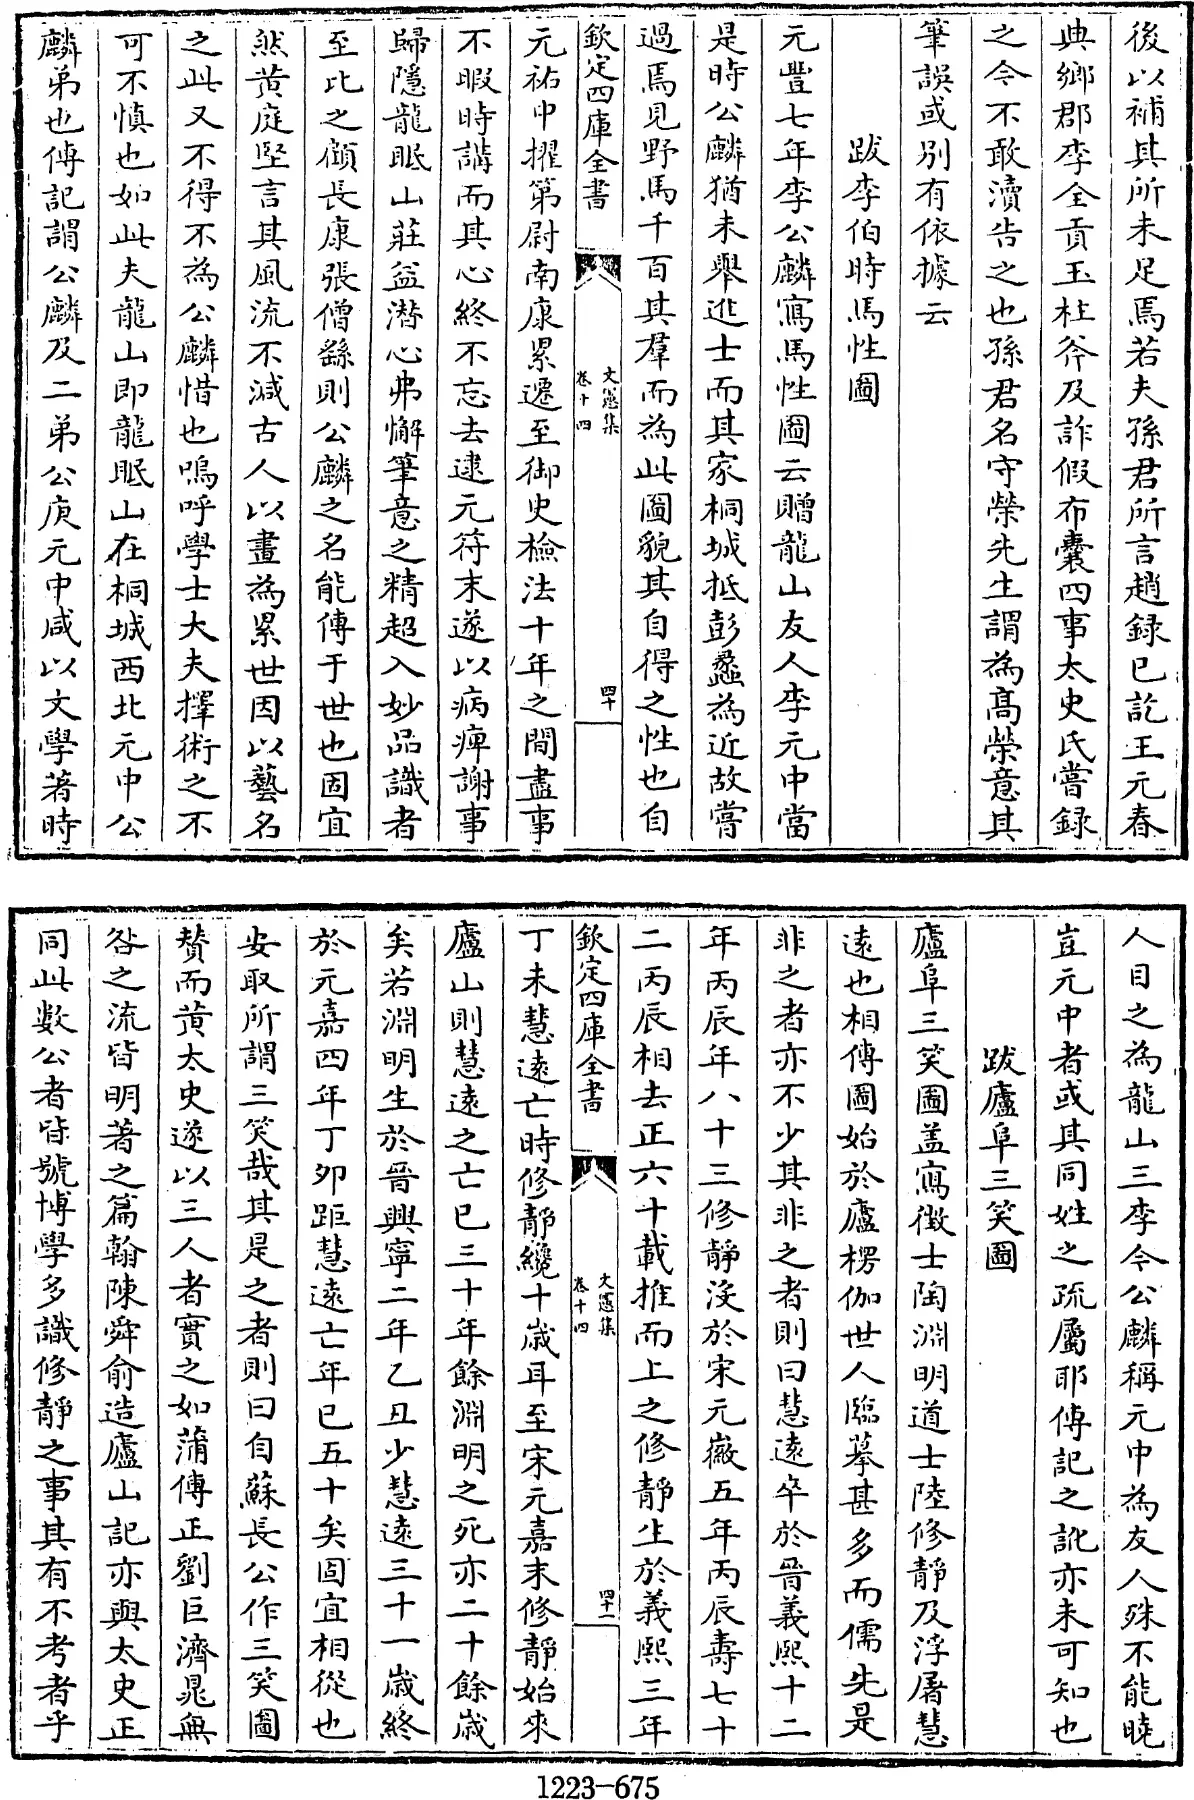 後以補其所未足焉若夫孫君所言趙録已訖王元春
典鄉郡李全貢玉柱斧及詐假布囊四事太史氏嘗録
之今不敢瀆告之也孫君名守榮先生謂為髙榮意其
筆誤或别有依據云
跋李伯時馬性圖
元豐七年李公麟寫馬性圖云贈龍山友人李元中當
是時公麟猶未舉進士而其家桐城抵彭蠡為近故嘗
過焉見野馬千百其羣而為此圖貌其自得之性也自
欽定四庫全書
文憲集
卷十四
四十
元祐中擢第尉南康累遷至御史檢法十年之間盡事
不暇時講而其心終不忘去逮元符末遂以病痺謝事
歸隱龍眠山莊益潜心弗懈筆意之精超入妙品識者
至比之顧長康張僧繇則公麟之名能傳于世也固宜
然黄庭堅言其風流不減古人以畫為累世因以藝名
之此又不得不為公麟惜也嗚呼學士大夫擇術之不
可不慎也如此夫龍山即龍眠山在桐城西北元中公
麟弟也傳記謂公麟及二弟公庚元中咸以文學著時
人目之為龍山三李今公麟稱元中為友人殊不能曉
豈元中者或其同姓之疏屬耶傳記之訛亦未可知也
跋廬阜三笑圖
廬阜三笑圖盖寫徴士陶淵明道士陸修靜及浮屠慧
遠也相傳圖始於廬楞伽世人臨摹甚多而儒先是
非之者亦不少其非之者則曰慧遠卒於晉義熙十二
年丙辰年八十三修靜沒於宋元徽五年丙辰壽七十
二丙辰相去正六十載推而上之修靜生於義熙三年
欽定四庫全書
文憲集
卷十四
四十一
丁未慧遠亡時修靜纔十歳耳至宋元嘉末修靜始來
廬山則慧遠之亡已三十年餘淵明之死亦二十餘歳
矣若淵明生於晉興寧二年乙丑少慧遠三十一歳終
於元嘉四年丁卯距慧遠亡年已五十矣固宜相從也
安取所謂三笑哉其是之者則曰自蘇長公作三笑圖
賛而黄太史遂以三人者實之如蒲傳正劉巨濟晁無
咎之流皆明著之篇翰陳舜俞造廬山記亦與太史正
同此數公者皆號博學多識修靜之事其有不考者乎
1223-675